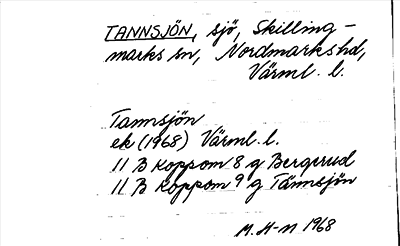 TANNSJÖN, sjö, Skilling-
marks sn, Nordmarks hd,
Värml. l.
Tannsjön
ek (1968) Värml. l.
11 B Koppom 8 g Bergerud
11 B Koppom 9 g Tännsjön
M. H-n 1968